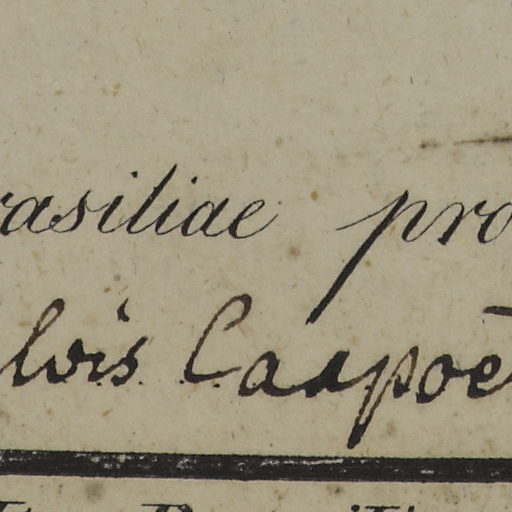 rasiliae pro
lvis. Caapoē